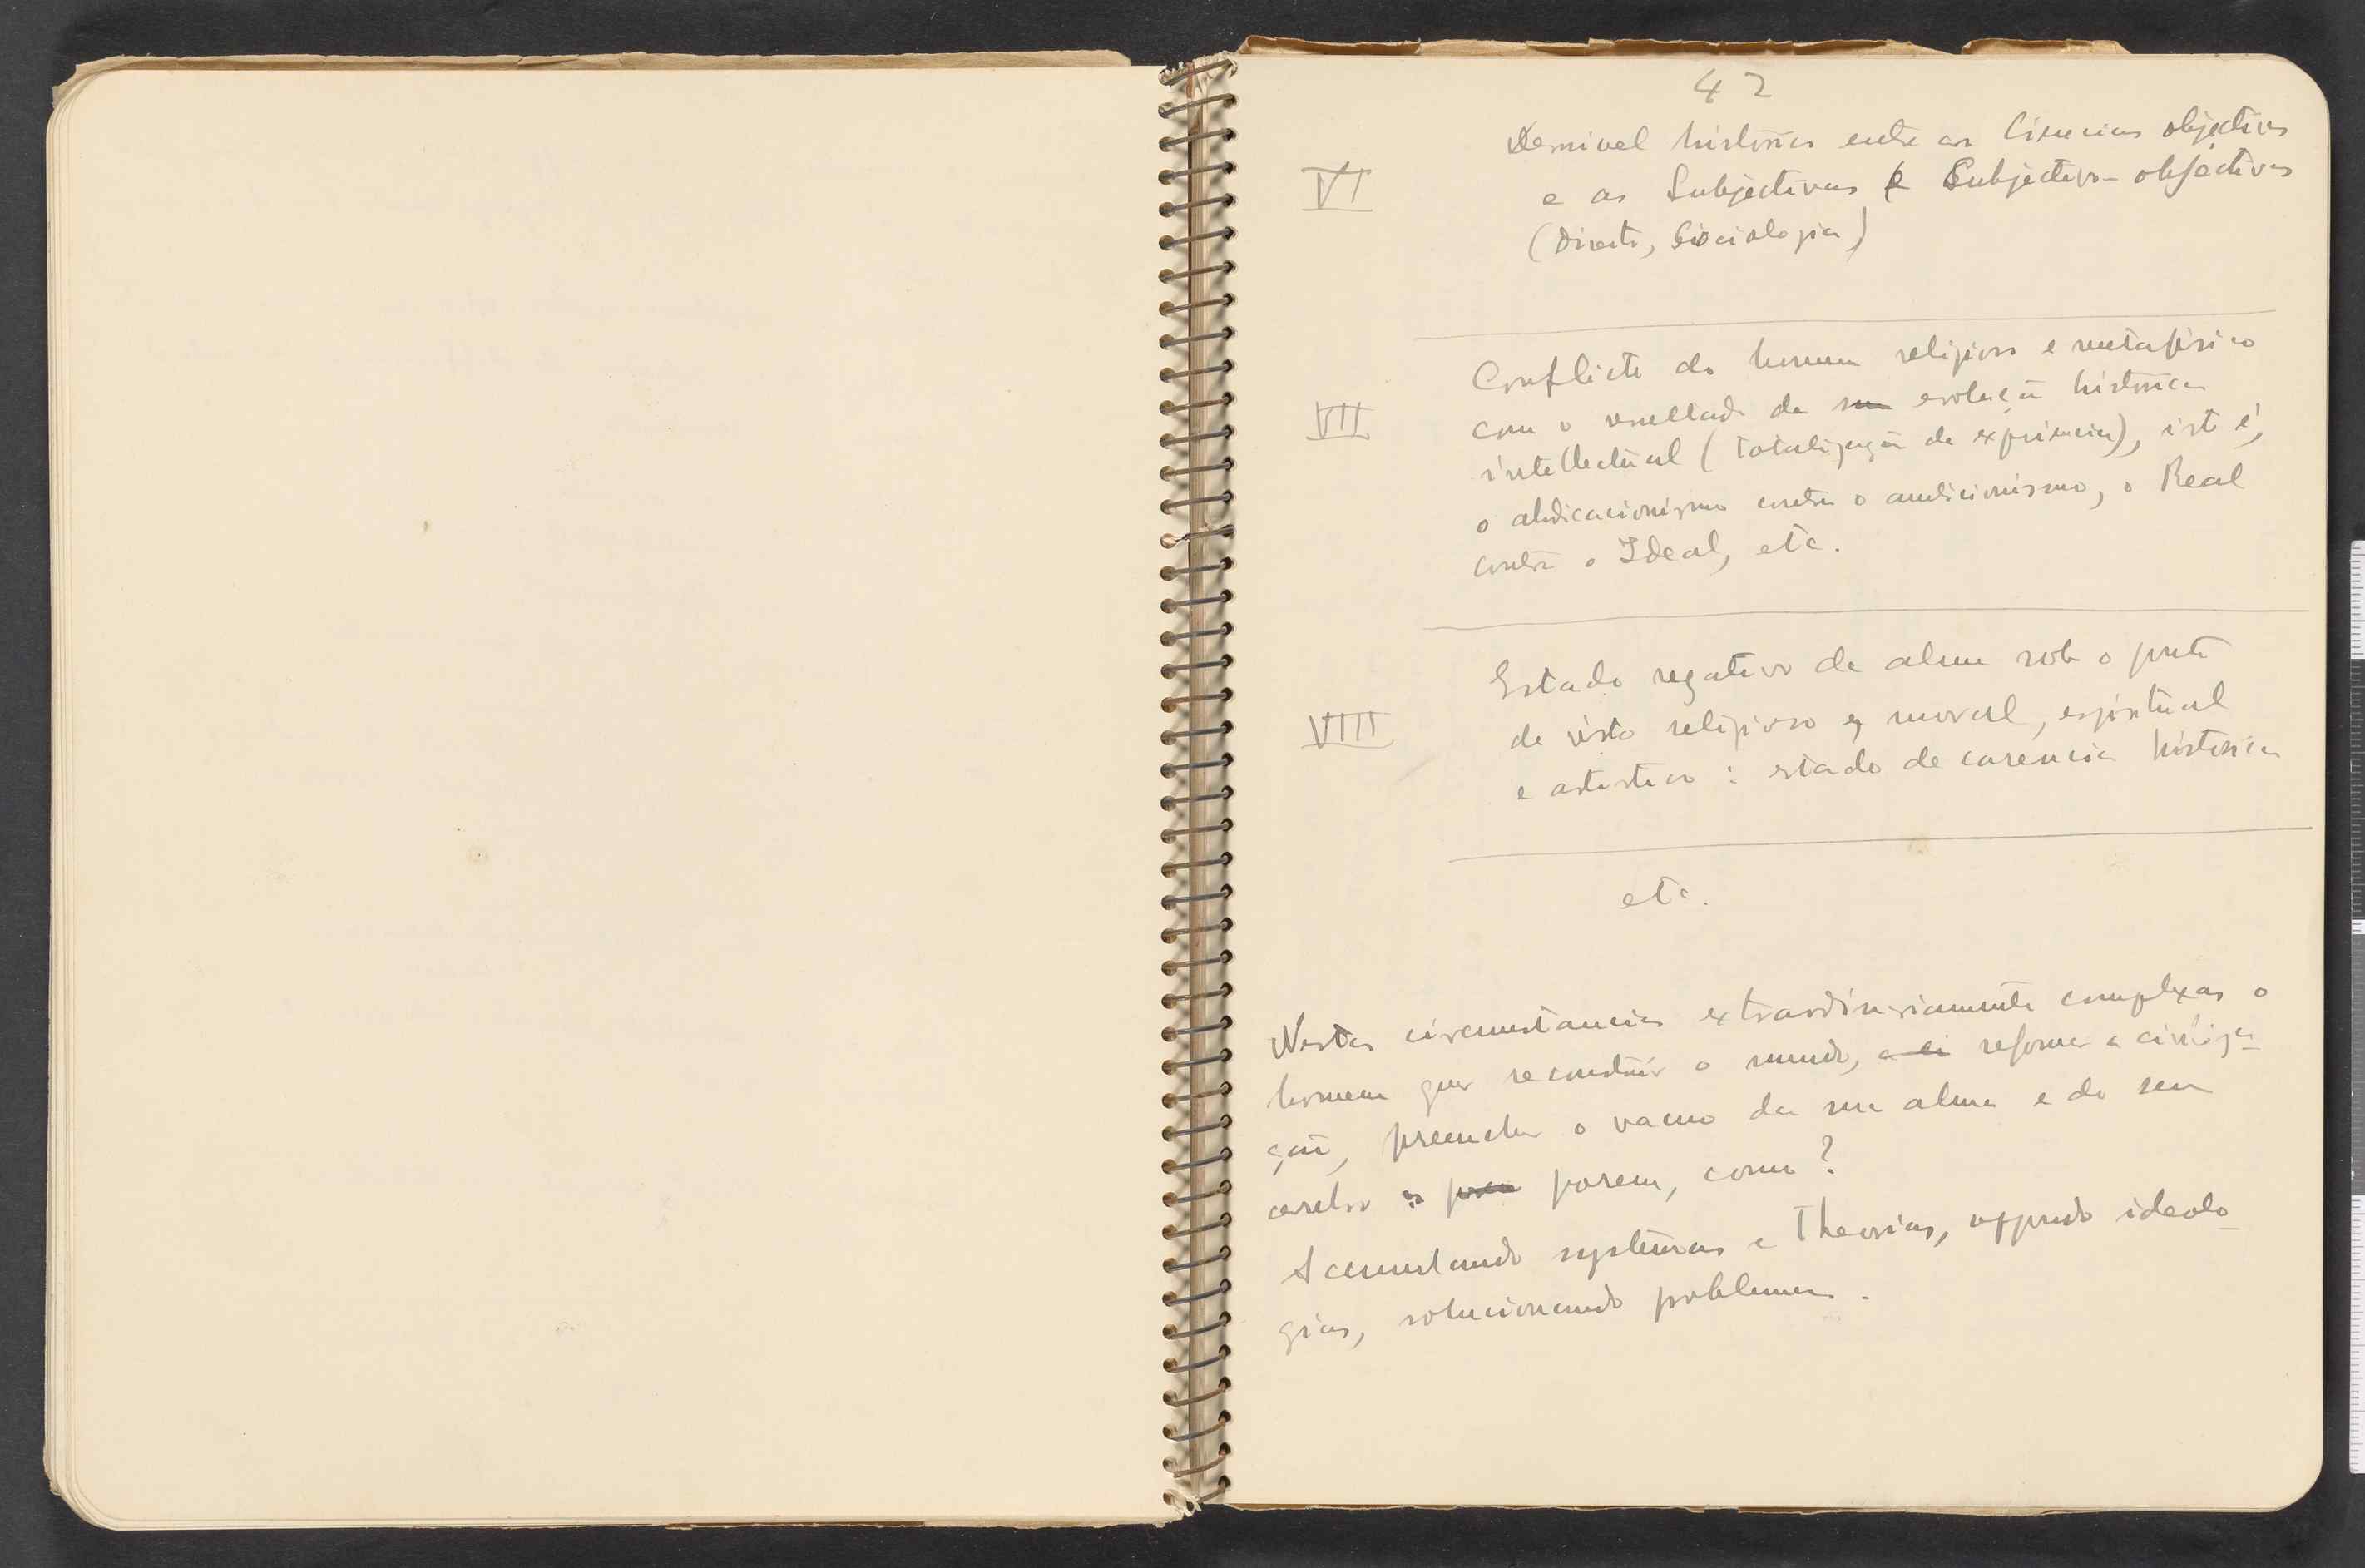 42
Desnivel historico entre as Ciencias objectivas
VI
e as Subjectivas e Subjectivo-objectivas
(Direito, Sociologia)
Conflicto do homem religioso e metafisico
VII
com o resultado da sua evolução historica
intellectual (totalização da experiencia), isto é,
o abdicacionismo contra o ambicionismo, o Real
contra o Ideal, etc.
Estado negativo da alma sob o ponto
VIII
de vista religioso, moral, espiritual
e artistico : estado de carencia historica
etc.
Nestas circumstancias extraordinariamente complexas o
homem quer reconstruir o mundo, reformar a civiliza-
ção, preencher o vacuo da sua alma e do seu
cerebro porem, como?
Accumulando systemas e theorias, oppondo ideolo-
gias, solucionando problemas.